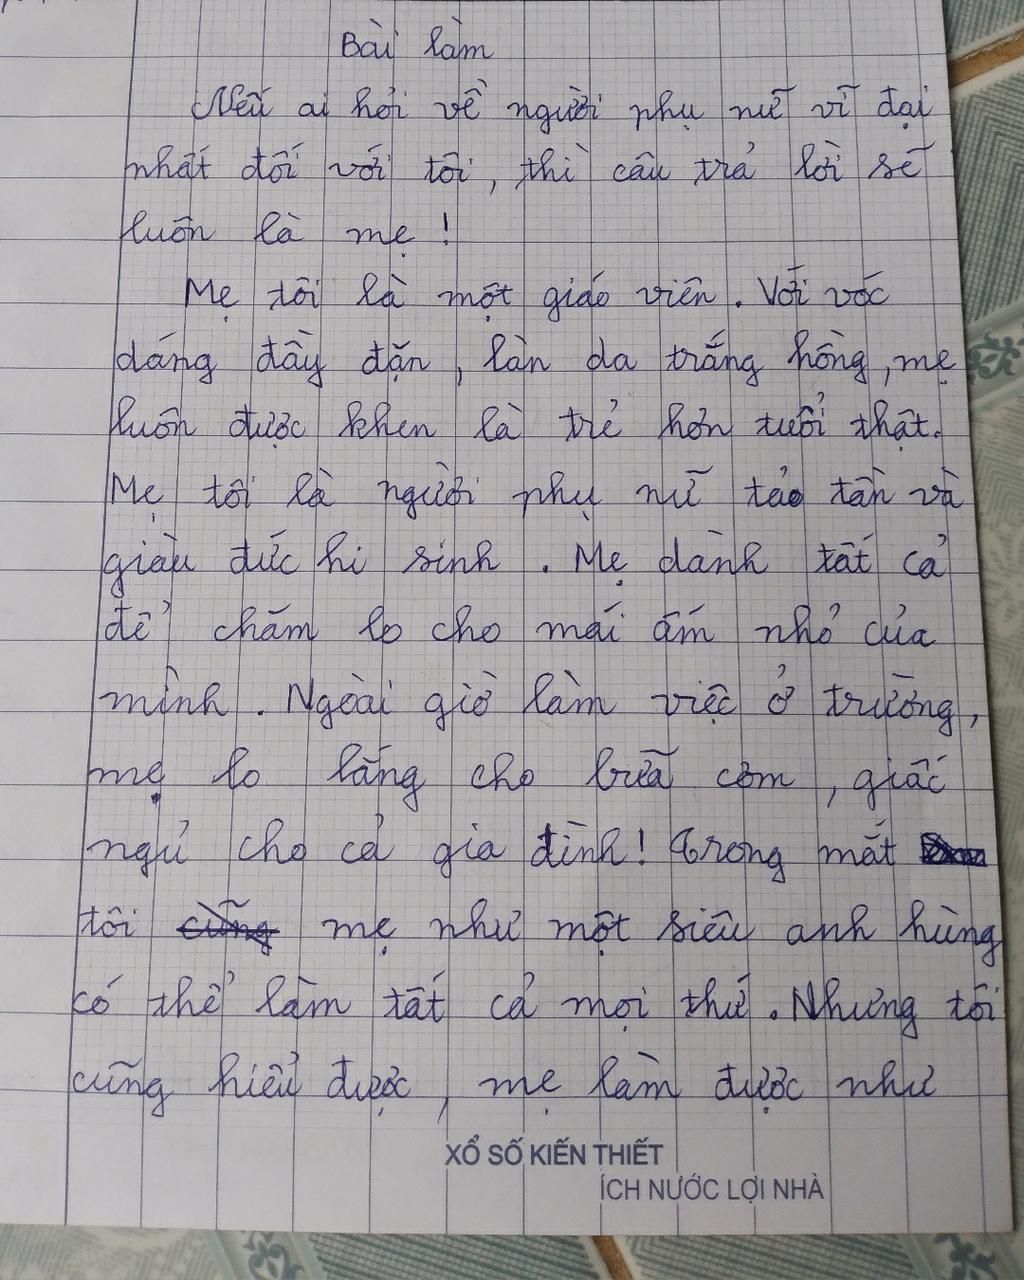 Bài làm
Nếu ai hỏi về người phụ nữ vĩ đại
nhất đối với tôi, thì câu trả lời sẽ
luôn là mẹ !
Mẹ tôi là một giáo viên. Với vóc
dáng đầy đặn, làn da trắng hồng, mẹ
luôn được khen là trẻ hơn tuổi thật.
Mẹ tôi là người phụ nữ tảo tần và
giàu đức hi sinh. Mẹ dành tất cả
để chăm lo cho mái ấm nhỏ của
mình. Ngoài giờ làm việc ở trường,
mẹ lo lắng cho bữa cơm, giấc
ngủ cho cả gia đình! Trong mắt
tôi cũng mẹ như một siêu anh hùng
có thể làm tất cả mọi thứ. Nhưng tôi
cũng hiểu được, mẹ làm được như
XỔ SỐ KIẾN THIẾT
ÍCH NƯỚC LỢI NHÀ